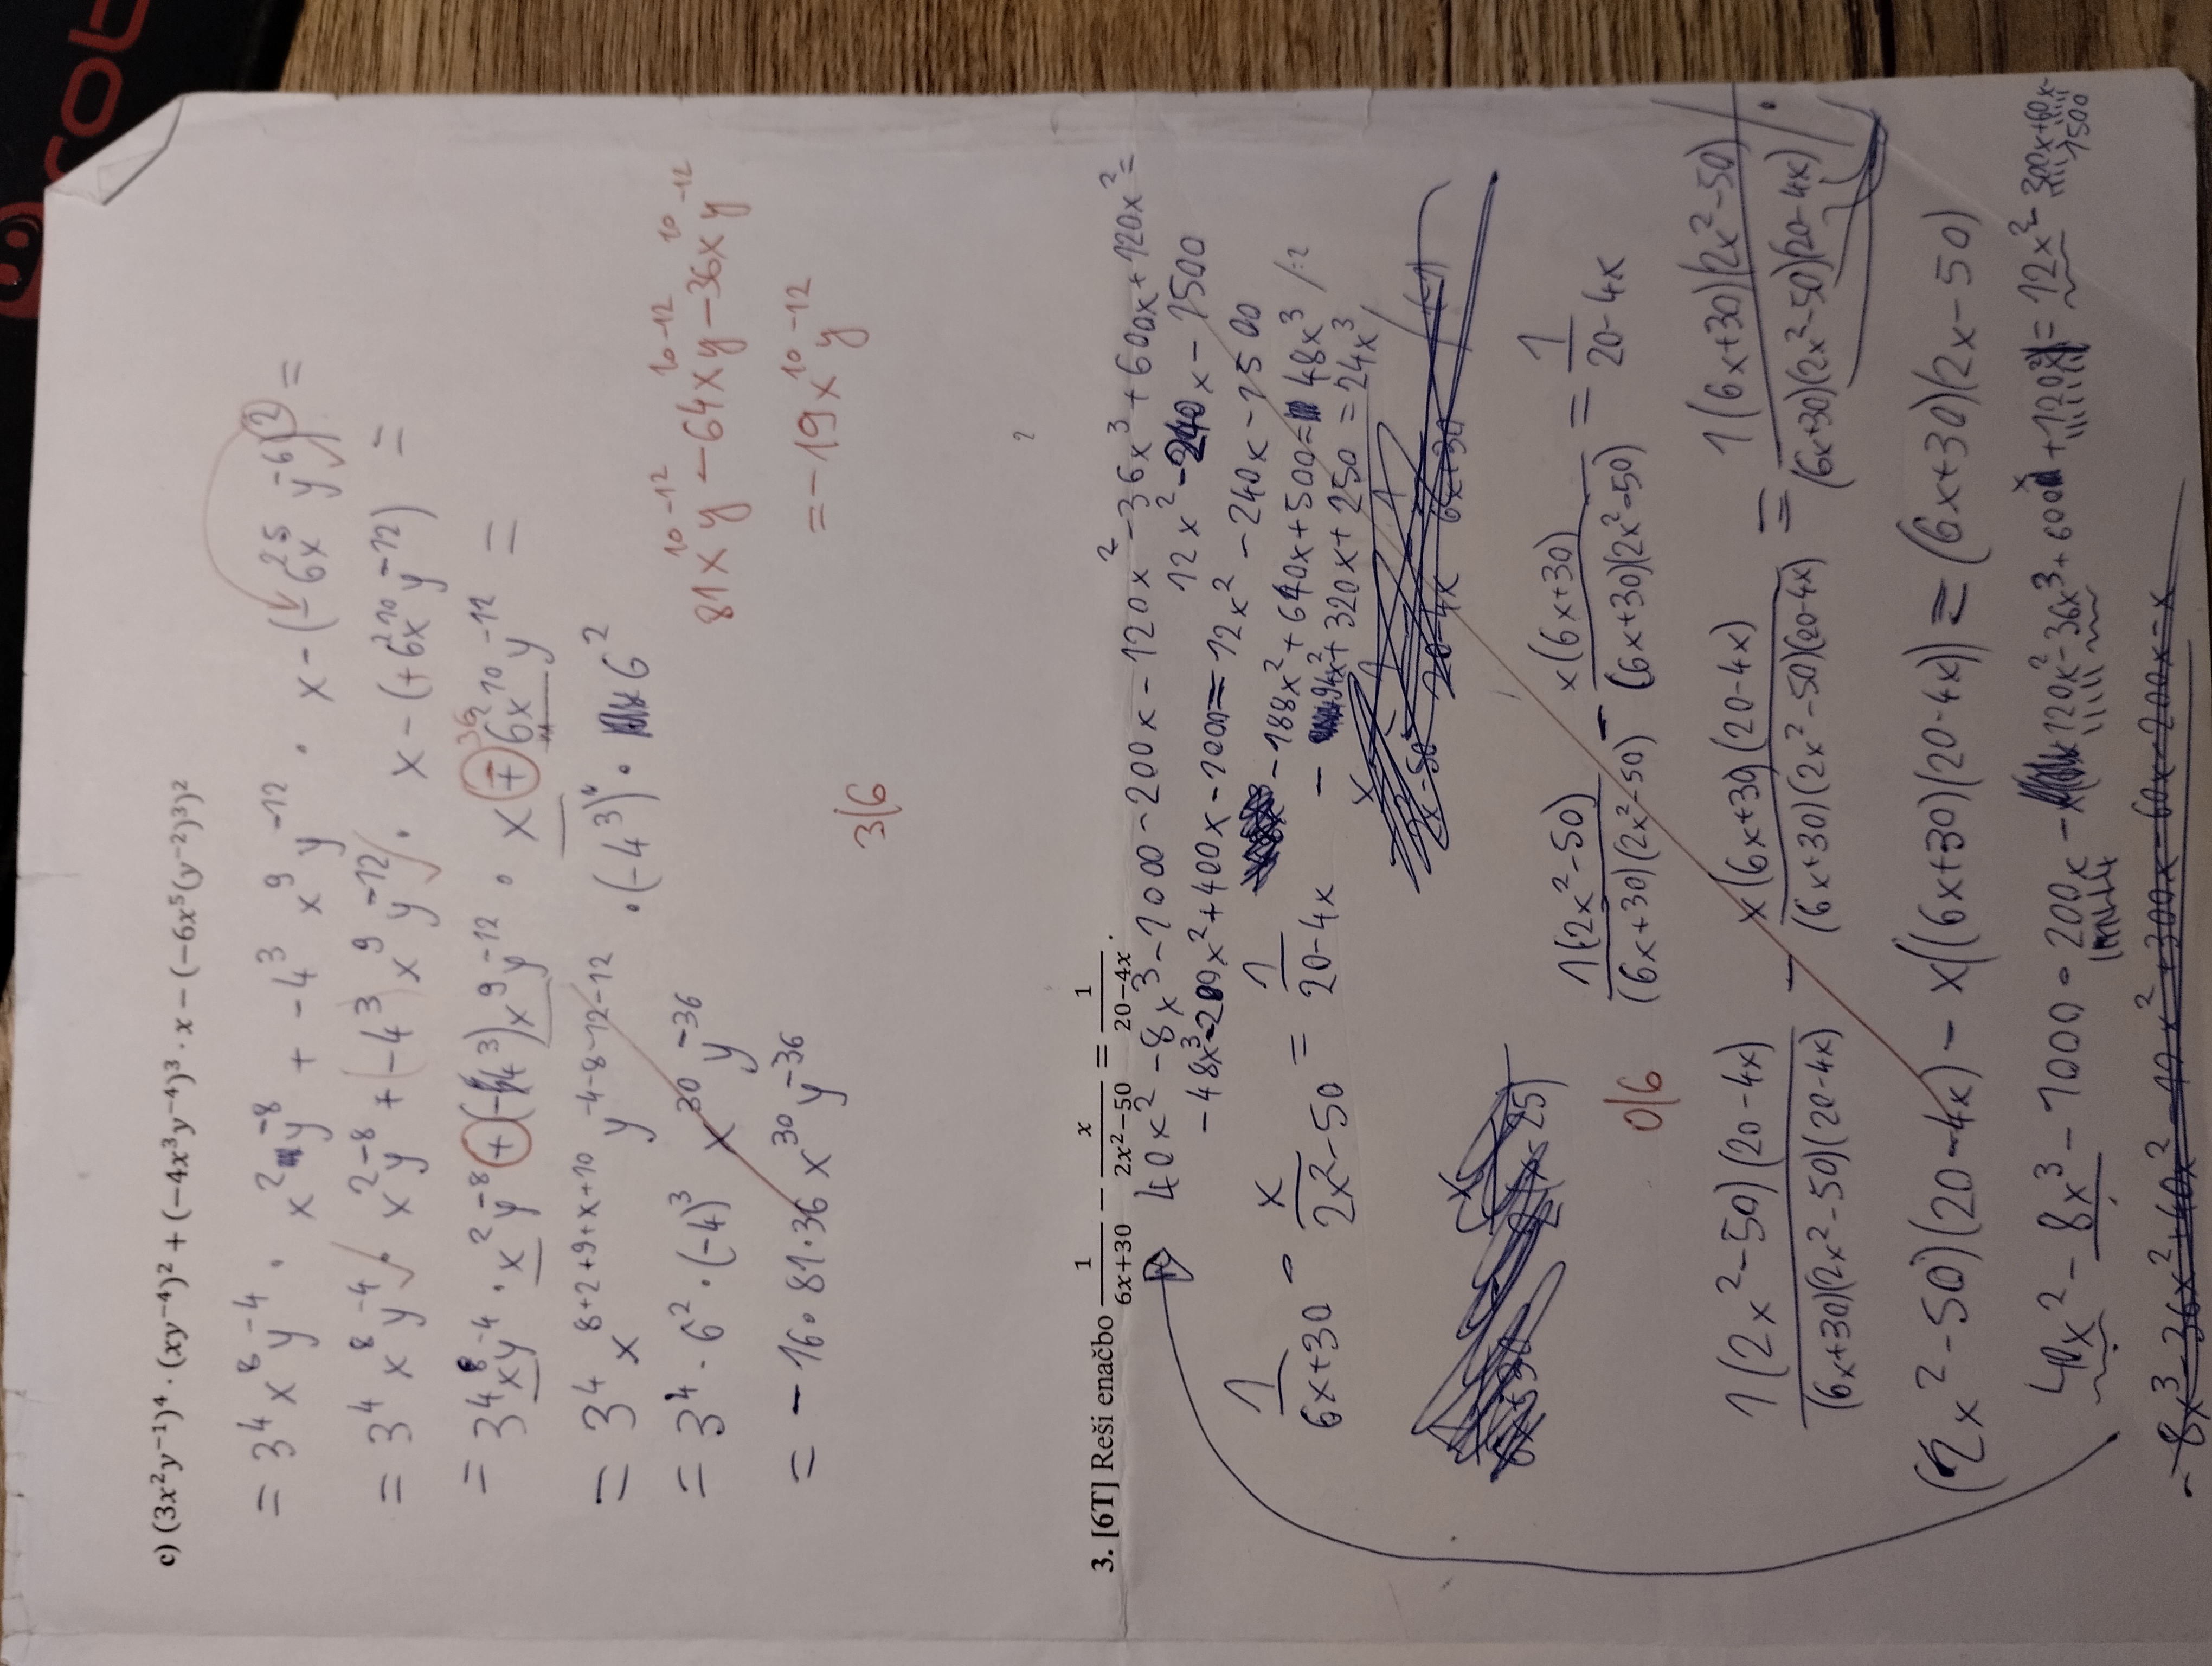 rob
c) (3x²y⁻¹)⁴ · (xy⁻⁴)² + (−4x³y⁻⁴)³ · x − (−6x⁵(y⁻²)³)²
= 3⁴ x⁸ y⁻⁴ · x² y⁻⁸ + −4³ x⁹ y⁻¹² · x − (−6²x⁵ y⁻⁶)² =
= 3⁴ x⁸ y⁻⁴ · x² y⁻⁸ + (−4³) x⁹ y⁻¹² · x − (+6²x¹⁰ y⁻¹²) =
= 3⁴ x⁸ y⁻⁴ · x² y⁻⁸ + (−4³) x⁹ y⁻¹² · x + 6²x¹⁰ y⁻¹² =
36
= 3⁴ x⁸⁺²⁺⁹⁺ˣ⁺¹⁰ y⁻⁴⁻⁸⁻¹²⁻¹² · (−4³) · 6²
= 3⁴ · 6² · (−4)³ x³⁰ y⁻³⁶
81x¹⁰y⁻¹² − 64x¹⁰y⁻¹² − 36x¹⁰y⁻¹²
= − 16 · 81 · 36 x³⁰ y⁻³⁶
= −19x¹⁰y⁻¹²
3/6
3. [6T] Reši enačbo 1/(6x+30) − x/(2x²−50) = 1/(20−4x).
40x² − 8x³ − 1000 − 200x − 120x² − 36x³ + 600x + 120x² =
12x² − 240x − 1500
−48x³ − 200x² + 400x − 1000 = 12x² − 240x − 1500
1/(6x+30) − x/(2x²−50) = 1/(20−4x)
−188x² + 640x + 500 = 48x³ /:2
− 94x² + 320x + 250 = 24x³
1(2x²−50)/((6x+30)(2x²−50)) − x(6x+30)/((6x+30)(2x²−50)) = 1/(20−4x)
0/6
1(2x²−50)(20−4x)/((6x+30)(2x²−50)(20−4x)) − x(6x+30)(20−4x)/((6x+30)(2x²−50)(20−4x)) = 1(6x+30)(2x²−50)/((6x+30)(2x²−50)(20−4x)) / ·
(2x²−50)(20−4x) − x((6x+30)(20−4x)) = (6x+30)(2x−50)
40x² − 8x³ − 1000 − 200x − 120x² − 36x³ + 600x + 120x² = 12x² − 300x + 60x −
1500
− 8x³ − 36x² + 40x² − 12x² + 300x − 60x − 200x − x